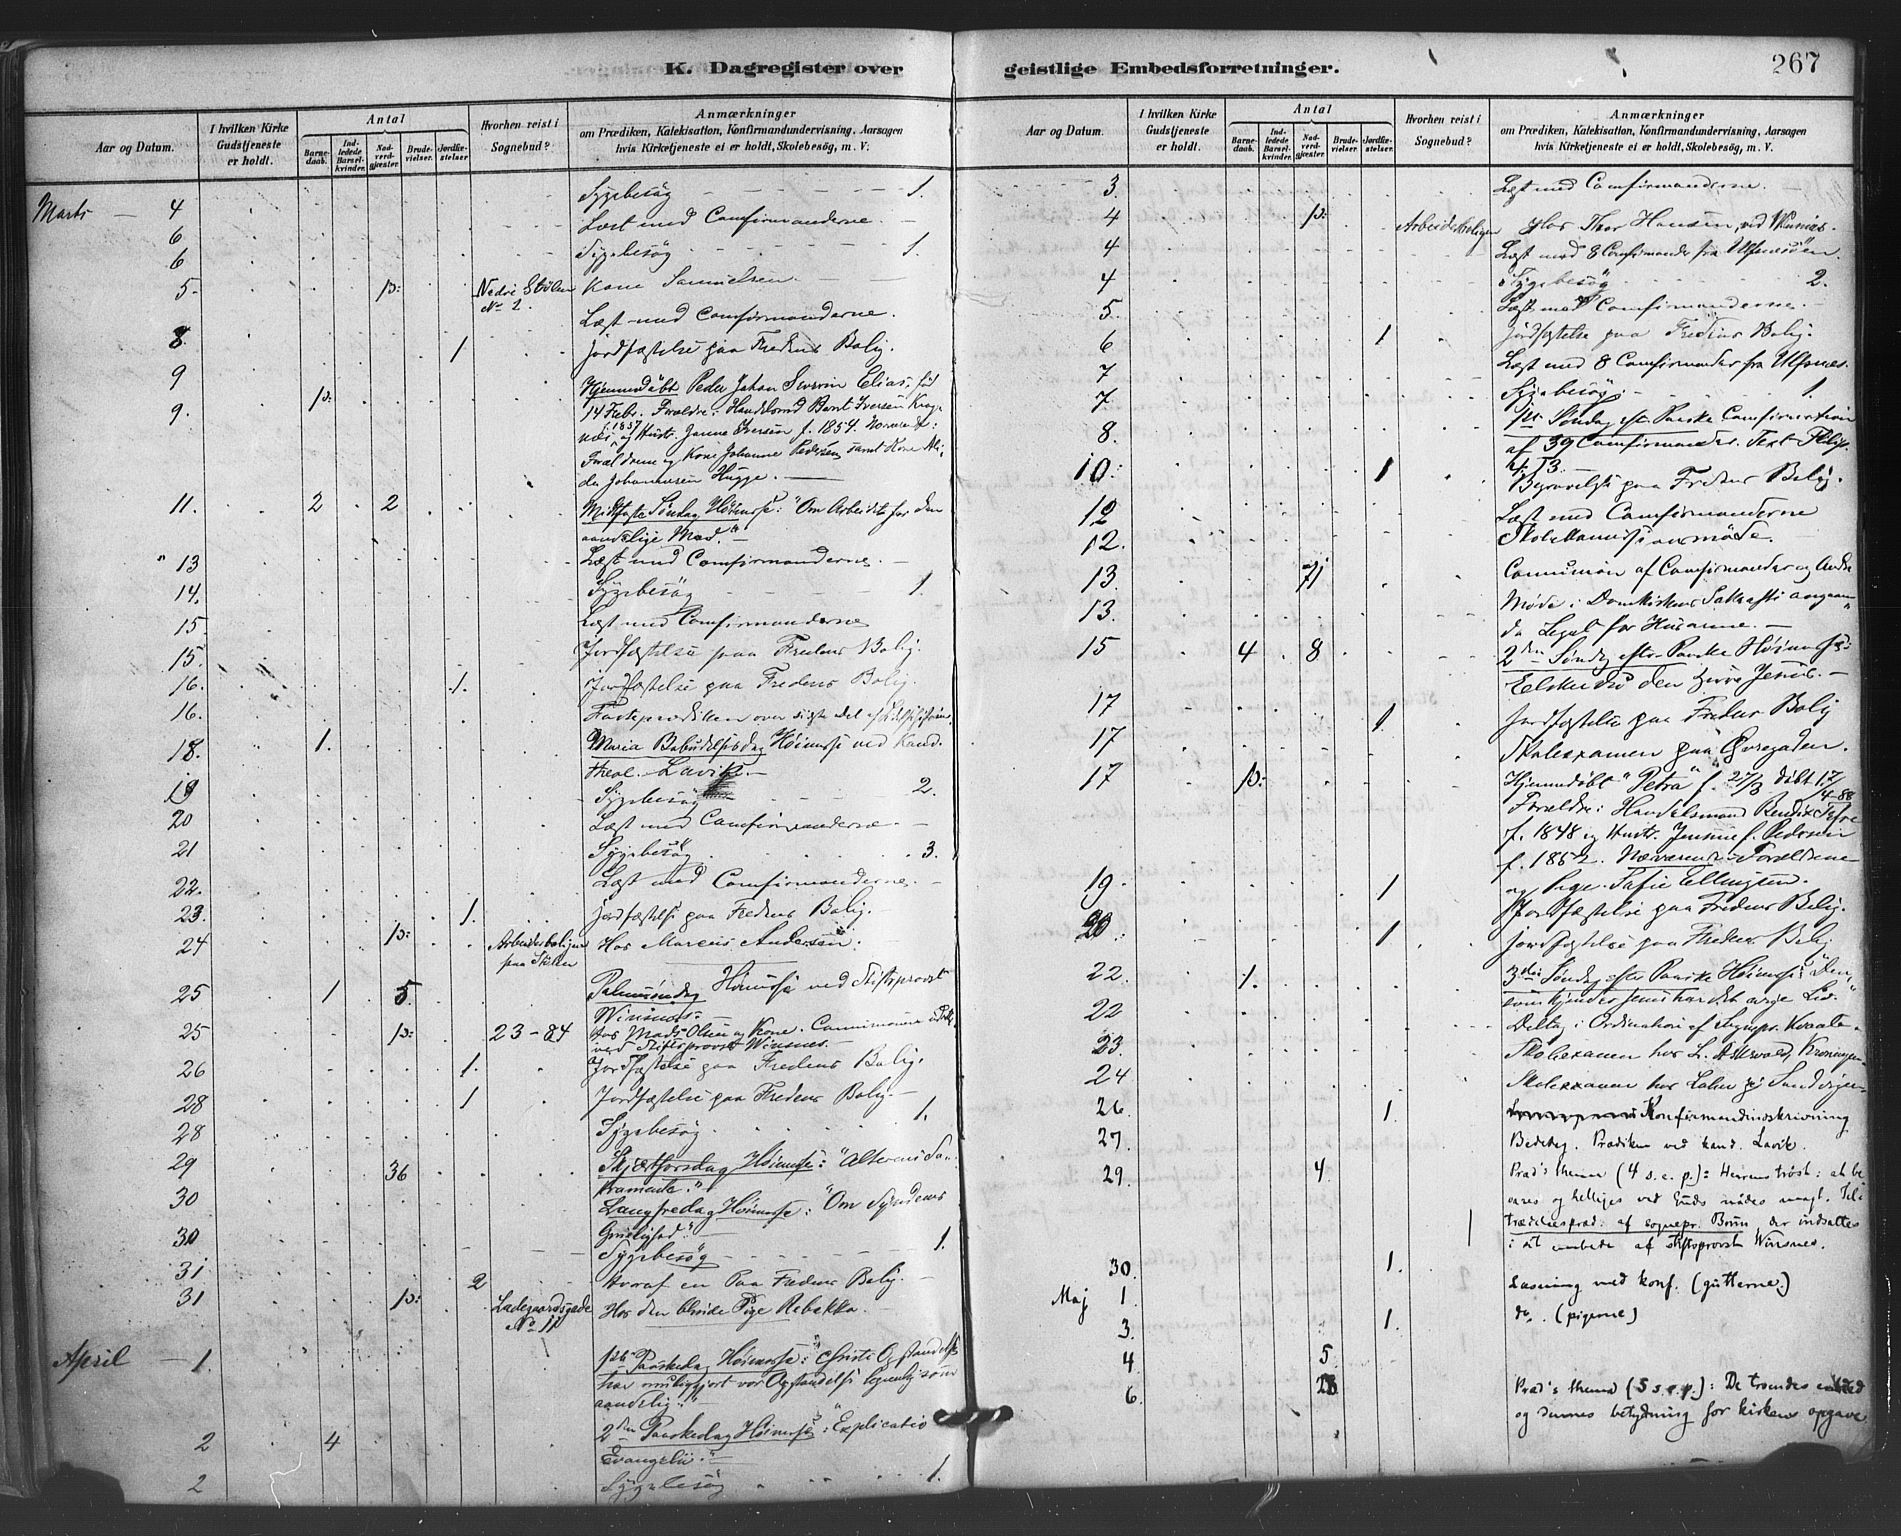 267
K. Dagregister over geistlige Embedsforretninger.
Aar og Datum.
I hvilken Kirke Gudstjeneste er holdt.
Antal
Barnedaab.
Indledede Barselkvinder.
Nadverdgjester.
Brudevielser.
Jordfæstelser.
Hvorhen reist i Sognebud?
Anmærkninger
om Prædiken, Katekisation, Konfirmandundervisning, Aarsagen
hvis Kirketjeneste ei er holdt, Skolebesøg, m. V.
Marts 4 Sygebesøg 1.
6 Læst med Comfirmanderne.
6 Sygebesøg 1.
5. p: Nedre Stølen No 2. Kone Samuelsen
8 Læst med Comfirmanderne.
9 1 Jordfæstelse paa Fredens Bolig.
9. p: Hjemmedøbt Peder Johan Severin Elias, fød
14 Febr. Forældre: Handelsmd Bernt Iversen
f. 1857 og Hustr. Janna Iversen f. 1854.
Forældrene og Kone Johanne Pedersen samt Kone
Johannesen Hugge.
11. 2 2 Midfaste Søndag Høimesse: "Om Arbeidet for den
aandelige Mad."
13 Læst med Comfirmanderne.
14. Sygebesøg 1.
15. Læst med Comfirmanderne
15. Jordfæstelse paa Fredens Bolig.
16. 1. Jordfæstelse paa Fredens Bolig.
16. Fasteprædiken over sidste Del af
18. 1. Maria Bebudelsesdag Høimesse ved Kand.
theol. Lavik.
19 Sygebesøg 2.
20 Læst med Comfirmanderne.
21 Sygebesøg 3.
22. Læst med Comfirmanderne.
23. 1. Jordfæstelse paa Fredens Bolig.
24 p: Arbeiderboligen paa Stølen Hos Marcus Andersen.
25 1 5 Palmesøndag Høimesse ved Stiftsprovst
Winsnes.
25 p: 23-84 Hos Mads Olsen og Kone.
ved Stiftsprovst Winsnes.
26 1. Jordfæstelse paa Fredens Bolig.
28 1 Jordfæstelse paa Fredens Bolig.
28 Sygebesøg. 1.
29 36 Skjærtorsdag Høimesse: "Alterens Sakramente."
30 Langfredag Høimesse: "Om Syndens
Gruelighed."
30 Sygebesøg 1.
31 2 Hvoraf en paa Fredens Bolig.
31 p: Ladegaardsgade No 11 Hos den blinde Pige Rebekka.
April 1. 1ste Paaskedag Høimesse: "Christi Opstandelse
har muliggjort vor Opstandelse legemlig som
aandelig."
2 4 2den Paaskedag Høimesse: Explicatio
Evangelii.
2 Sygebesøg 1.
Aar og Datum.
I hvilken Kirke Gudstjeneste er holdt.
Antal
Barnedaab.
Indledede Barselkvinder.
Nadverdgjester.
Brudevielser.
Jordfæstelser.
Hvorhen reist i Sognebud?
Anmærkninger
om Prædiken, Katekisation, Konfirmandundervisning, Aarsagen
hvis Kirketjeneste ei er holdt, Skolebesøg, m. V.
3 Læst med Comfirmanderne.
4 p: Arbeiderboligen Hos Thor Hansen ved
4 Læst med 8 Comfirmander fra Ulfsnesøen
4 Sygebesøg 2.
5. Læst med Comfirmanderne.
6 1 Jordfæstelse paa Fredens Bolig.
7 Læst med 8 Comfirmander fra Ulfsnes.
7. Sygebesøg. 1.
8 1ste Søndag efter Paaske Comfirmation
af 39 Comfirmander. Text Philip.
4. 13.
10. 1 Begravelse paa Fredens Bolig.
12 Læst med Comfirmanderne
12. Skolekommissionsmøde.
13. 71 Communion af Comfirmander og Andre
13. Møde i Domkirkens Sakristi angaaende
Legat for Husarme.
15 4 8 2den Søndag efter Paaske Høimesse:
Elsker du den Herre Jesus.
17 1 Jordfæstelse paa Fredens Bolig
17 Skoleexamen paa Øvregaden.
17 p: Hjemmedøbt "Petra" f. 27/3 døbt 17/4-88
Forældre: Handelsmand Bendix
f. 1848 og Hustr. Jensine f. Pedersen
f. 1852. Nærværende: Forældrene
og Pige Sofie Ellingsen.
19 1 Jordfæstelse paa Fredens Bolig.
20. 1 Jordfæstelse paa Fredens Bolig
22. 1. 3die Søndag efter Paaske Høimesse: "Den
som kjender Jesus har det evige Liv."
22 Deltog i Ordination af Sognepr. Kvaale.
23. Skoleexamen hos L. Askevold, Kroningen
24 Skoleexamen hos Lærer paa Sandviger
26. 1. Konfirmandindskrivning
27. Bededag. Prædiken ved kand. Lavik.
29. 4. Præd's thema (4 s. e. p.): Herrens trøst: at be-
vares og helliges ved Guds ordes magt. Til-
trædelsespræd. af sognepr. Brun, der indsattes
i sit embede af stiftsprovst Winsnes.
30. 1. Læsning med konf. (gutterne)
Maj 1. do. (pigerne)
3. 1.
4 5
6 Præd's thema (5 s. e. p.): De troendes
og sinnes betydning for kirkens opgave